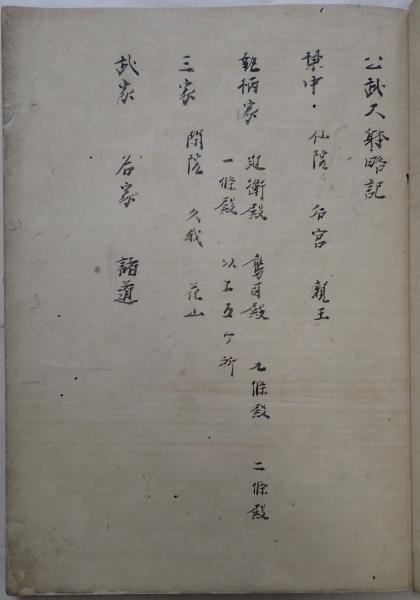 公武大躰略記
禁中・ 仙院 后宮 親王
執柄家 近衛殿 鷹司殿 九條殿 二條殿
一條殿 以上五ケ所
三家 閑院 久我 花山
武家 谷家 諸道